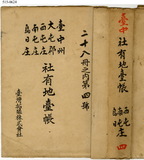 二十八冊之內第四號
臺中州
大屯郡
西屯庄
南屯庄
社有地臺帳
臺灣拓殖株式會社
臺中
社有地臺帳
西屯庄
南屯庄
四